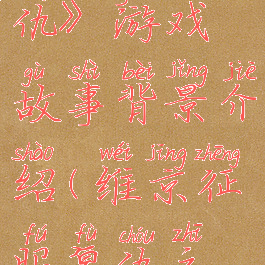 仇》游戏
gù shì bèi jǐng jiè
故事背景介
shào wéi jīng zhēng
绍(维京征
fú fù chóu zhī
服复仇之